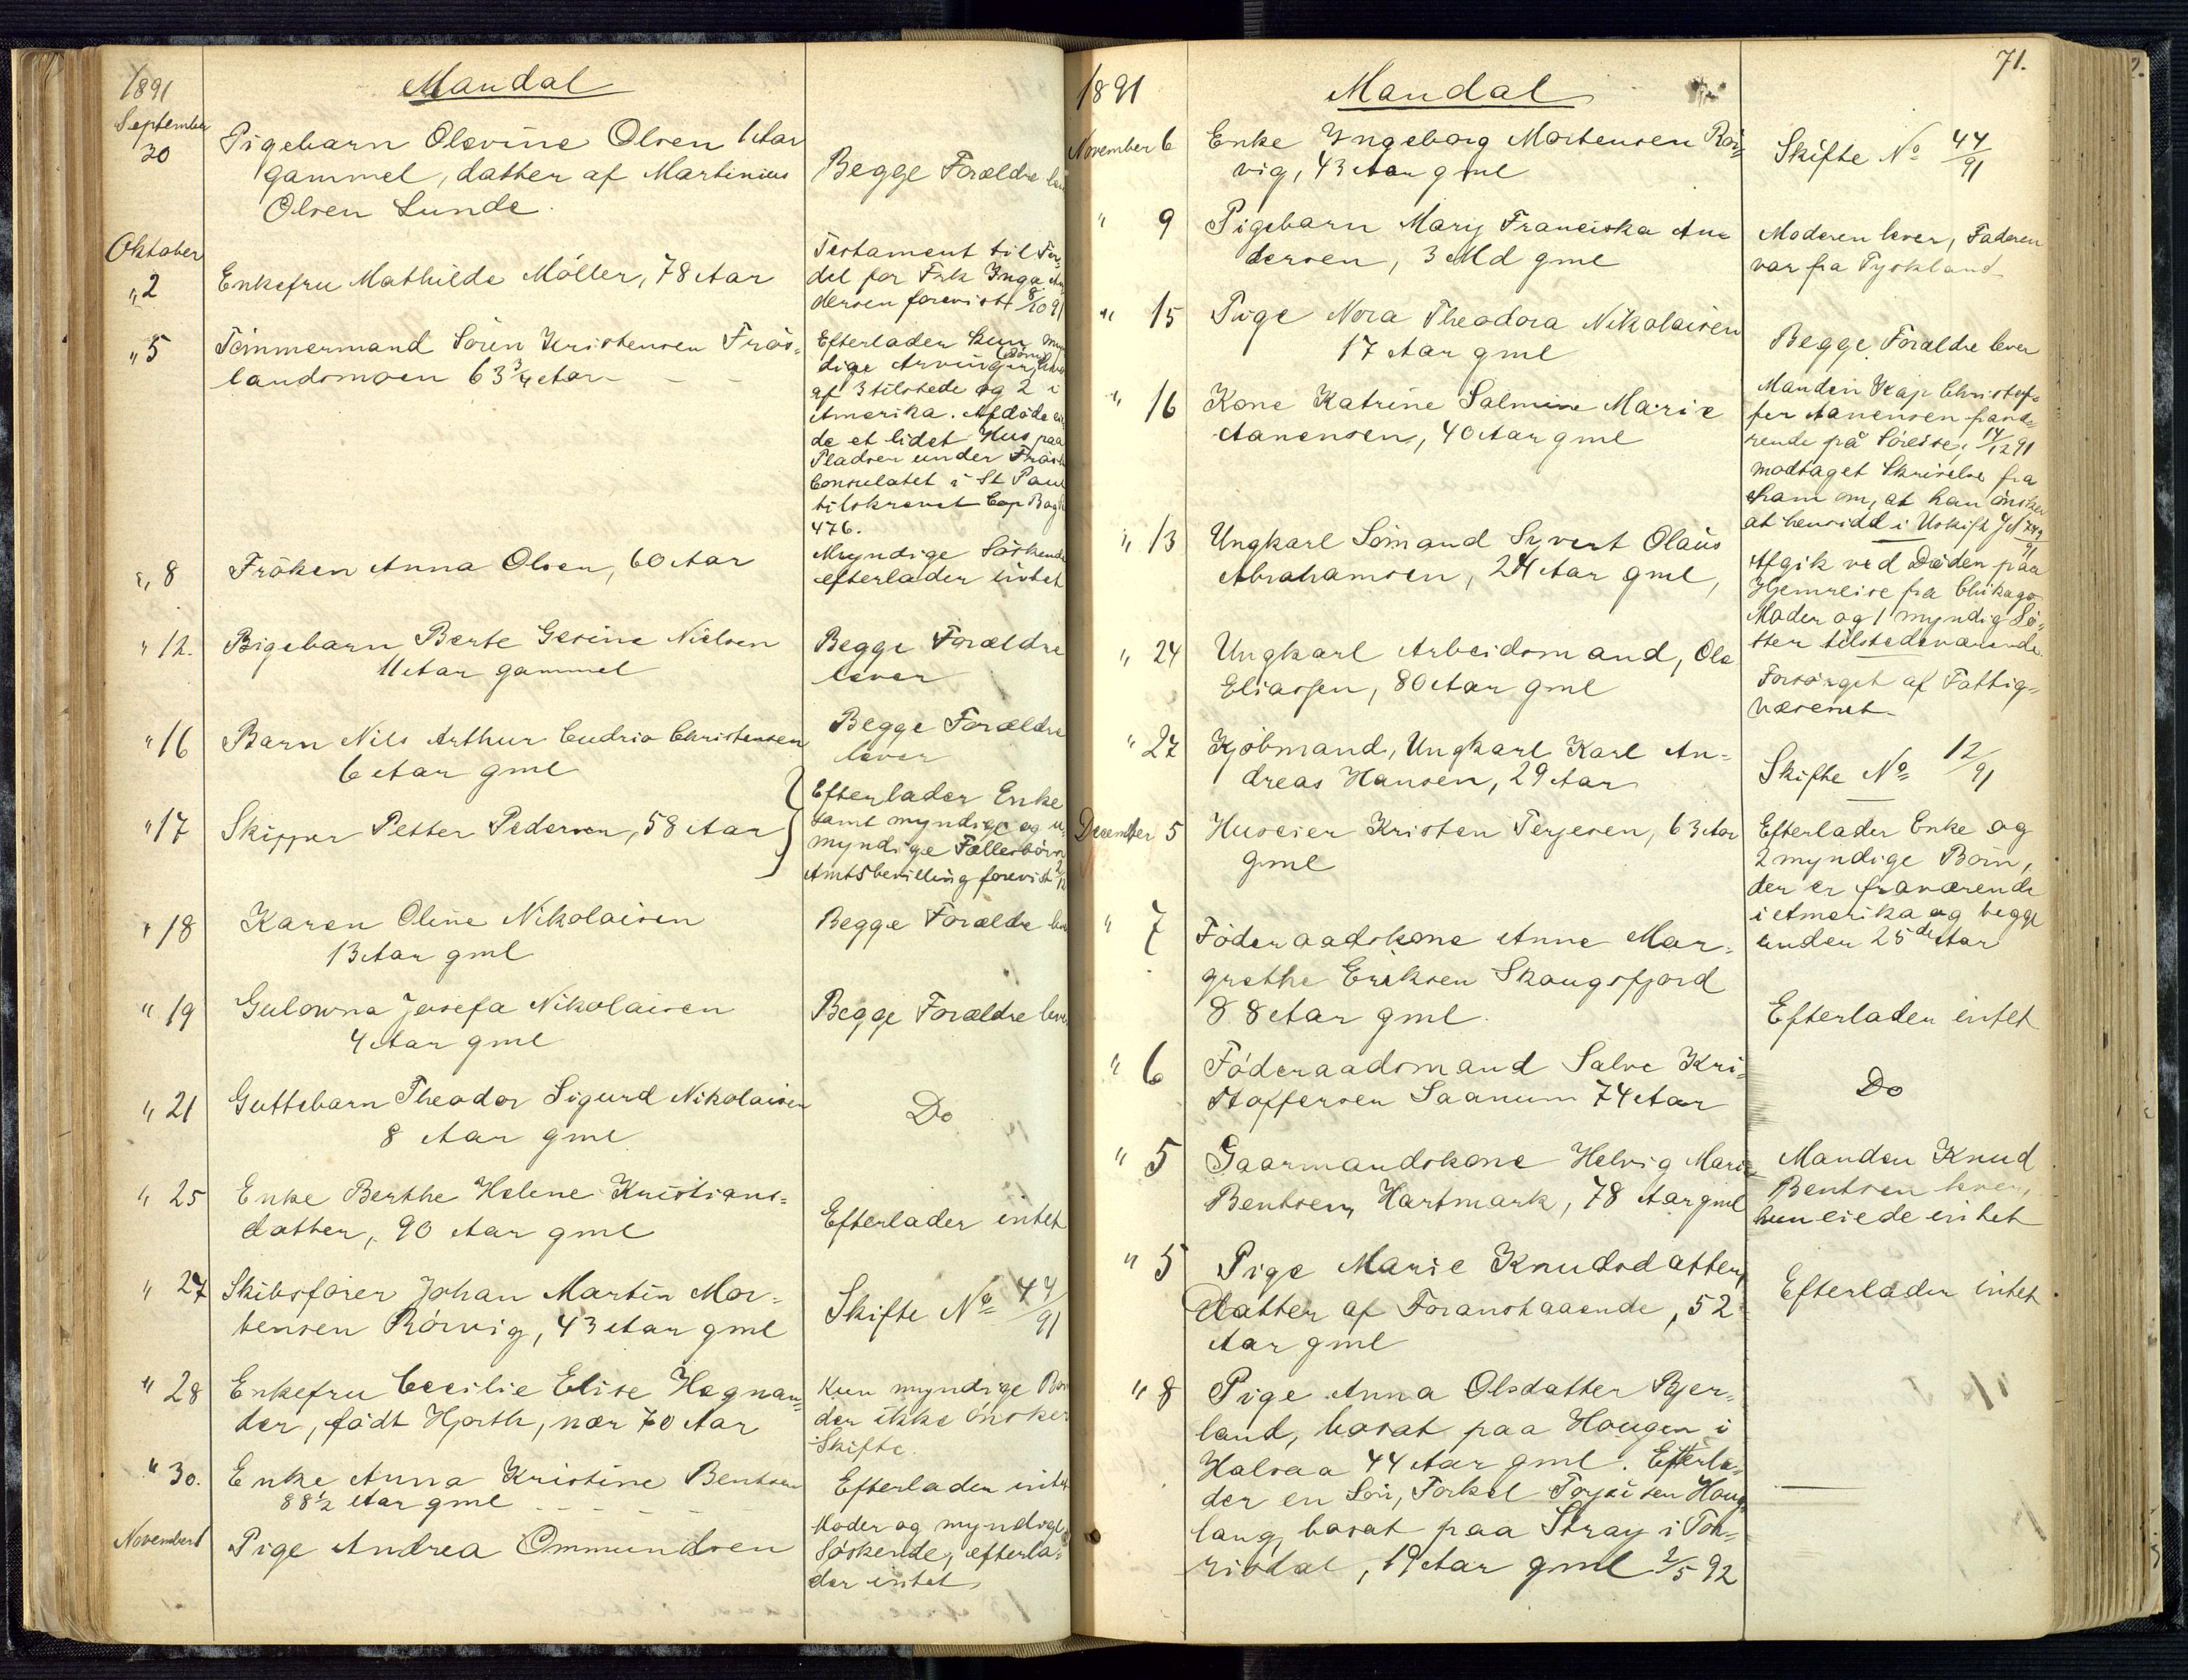 1891
Mandal
September
30
Pigebarn Olevine Olsen 1 Aar
gammel, datter af Martinius
Olsen Lunde.
Begge Forældre
Oktober
" 2
Enkefru Mathilde Möller, 78 Aar
Testament til
del for Frk Inga
dersen forevist 8/10 91
" 5
Tömmermand Sören Kristensen Frös-
landsmoen 63 3/4 Aar - - -
Efterlader kun
dige Arvinger,
af 3 tilstede og 2 i
Amerika. Afdöde
de et lidet Hus paa
Pladsen under
Consulatet i St Paul
tilskrevet Cop Bog
476.
" 8
Fröken Anna Olsen, 60 Aar
Myndige Söskende
efterlader intet
" 12.
Pigebarn Berte Gesine Nielsen
11 Aar gammel
Begge Forældre
lever
" 16
Barn Nils Arthur Christensen
6 Aar gml
Begge Forældre
lever
" 17
Skipper Petter Pedersen, 58 Aar
Efterlader Enke
samt myndige og u-
myndige Fællesbörn
Amtsbevilling forevist
" 18
Karen Oline Nikolaisen
13 Aar gml
Begge Forældre
" 19
Gulowna Josefa Nikolaisen
4 Aar gml
Begge Forældre lever
" 21
Guttebarn Theodor Sigurd Nikolaisen
8 Aar gml
Do
" 25
Enke Berthe Helene Kristians-
datter, 90 Aar gml
Efterlader intet
" 27
Skibsförer Johan Martin Mor-
tensen Rörvig, 43 Aar gml
Skifte No 44/91
" 28
Enkefru Cecilie Elise Hagnan-
der, födt Hjorth, nær 70 Aar
Kun myndige
der ikke önsker
Skifte.
" 30.
Enke Anna Kristine Bentsen
88 1/2 Aar gml - - - -
Efterlader intet
November 1
Pige Andrea Ommundsen
Moder og myndige
Söskende, efterla-
der intet
71.
1891
Mandal
November 6
Enke Yngeborg Mortensen Rör-
vig, 43 Aar gml
Skifte No 44/91
" 9
Pigebarn Mary Franciska An-
dersen, 3 Md gml
Moderen lever, Faderen
var fra Tyskland
" 15
Pige Nora Theodora Nikolaisen
17 Aar gml
Begge Forældre lever
" 16
Kone Katrine Salmine Marie
Aanensen, 40 Aar gml
Manden Kap Christof-
fer Aanensen fravæ-
rende på Söreise, 14/12 91
modtaget Skrivelse fra
ham om, at han önsker
at hensidd i Uskift
" 13
Ungkarl Sömand Syvert Olaus
Abrahamsen, 24 Aar gml,
Afgik ved Döden paa
Hjemreise fra Chikago
Moder og 1 myndig Sö-
ster tilstedeværende.
" 24
Ungkarl Arbeidsmand, Ole
Eliassen, 80 Aar gml
Forsörget af Fattig-
væsenet.
" 27
Kjöbmand, Ungkarl Karl An-
dreas Hansen, 29 Aar
Skifte No 12/91
December 5
Huseier Kristen Terjesen, 63 Aar
gml
Efterlader Enke og
2 myndige Börn,
der er fraværende
i Amerika og begge
under 25de Aar
" 7
Föderaadskone Anne Mar-
grethe Eriksen Skaugsfjord
88 Aar gml.
Efterlader intet
" 6
Föderaadsmand Salve Kri-
stoffersen Saanum 74 Aar
Do
" 5
Gaarmandskone Helvig Marie
Bentsen, Hartmark, 78 Aar gml
Manden Knud
Bentsen lever,
hun eiede intet
" 5
Pige Marie Knudsdatter,
datter af Foranstaaende, 52
Aar gml
Efterlader intet
" 8
Pige Anna Olsdatter Bjer-
land, bosat paa Haugen i
Halsaa 44 Aar gml. Efterla-
der en Sön, Torkel Torjeisen Houg-
land, bosat paa Stray i Tor-
risdal, 19 Aar gml 2/5 92